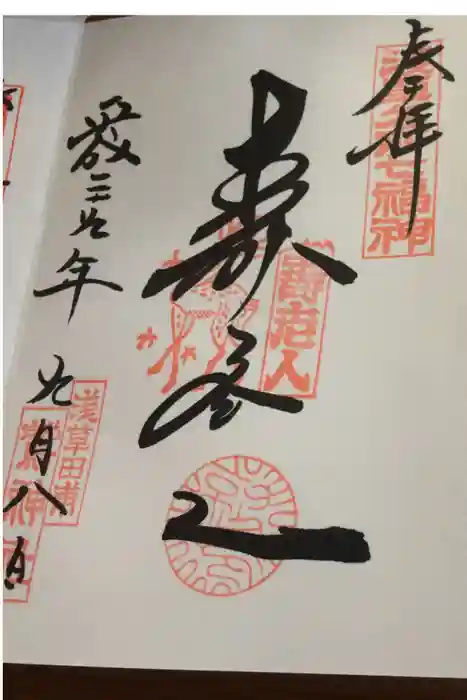 奉拝
浅草名所七福神
寿老人
寿老人
平成二九年
九月八日
浅草田甫
鷲神社